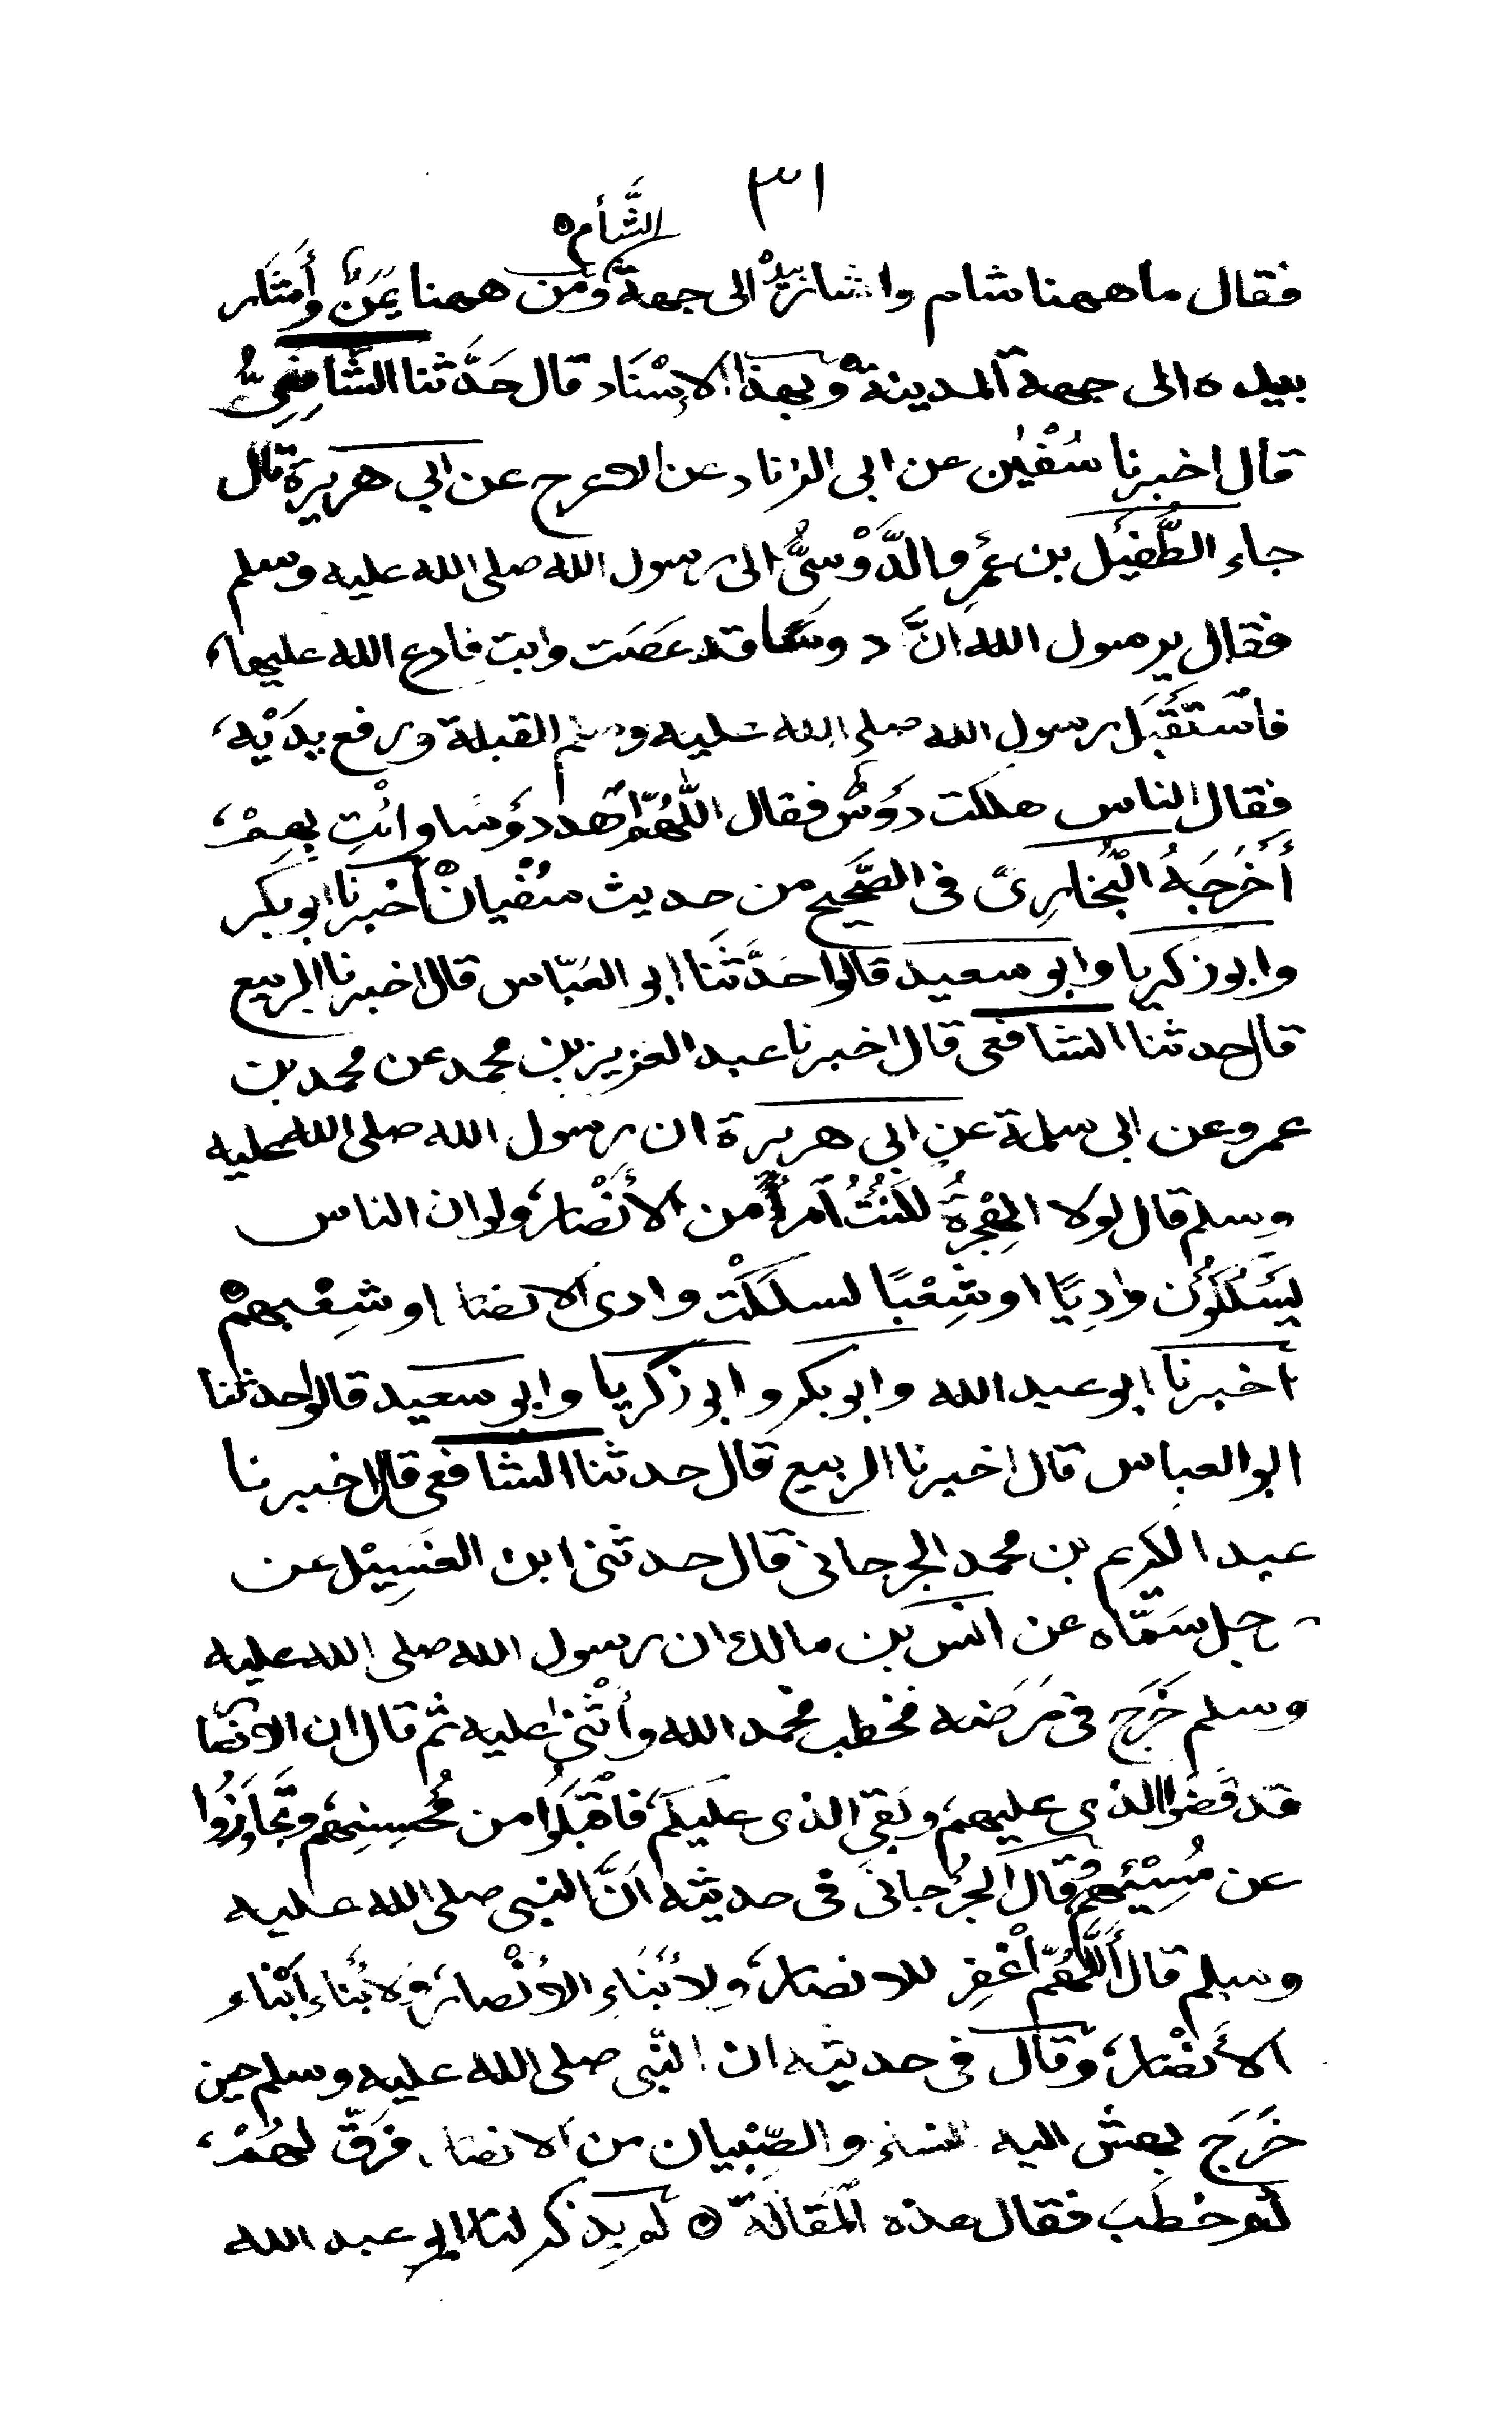 ٣١
الشَّأم
فقال ما ههنا شام واشار بيده الى جهة ومن ههنا يَمَنٌ وأشار
بيده الى جهة المدينة وبهذا الإسْنَاد قال حَدَّثنا الشَّافِعِيُّ
قال اخبرنا سُفْيٰن عن ابى الزناد عن الاعرج عن ابي هريرة قال
جاء الطُّفَيْل بن عَمْرٍو الدَّوْسِيُّ الى رسول الله صلى الله عليه وسلم
فقال يرسول الله انَّ دوسًا قد عَصَت وابت فادع الله عليها،
فاسْتَقْبَل رسول الله صلى الله عليه وسلم القبلة ورفع يدَيْه،
فقال الناس هلكت دَوْسٌ فقال اللّٰهُمّ اهْد دَوْسًا وائْتِ بِهِمْ،
أَخْرَجَهُ الْبُخَارِىّ فى الصَّحِيح من حديث سُفْيانْ أخبرنا ابو بكر
وابو زكريا وابو سعيد قالوا حَدَّثَنَا ابو العَبّاس قال اخبرنا الربيع
قال حدثنا الشافعى قال اخبرنا عبد العزيز بن محمد عن محمد بن
عمرو عن ابى سلمة عن ابى هريرة ان رسول الله صلى الله عليه
وسلم قال لولا الهِجْرَةُ لكنتُ امرأً من الأَنْصار، ولو ان الناس
يَسْلُكُوْن وادِيًا او شِعْبًا لسلكْت وادى الانصار او شِعْبهمْ
أخبرنا ابو عبد الله وابو بكر وابو زكريا وابو سعيد قالوا حدثنا
ابو العباس قال اخبرنا الربيع قال حدثنا الشافعى قال اخبرنا
عبد الكريم بن محمد الجرجانى قال حدثنى ابن الغَسِيْل عن
رجل سَمَّاه عن انس بن مالك ان رسول الله صلى الله عليه
وسلم خَرَج فى مَرَضه فخطب فحمد الله وأثْنىٰ عليه ثم قال ان الانصار
قد قَضَوُا الذي عليهم، وبَقى الذى عليكم، فاقْبَلُوا من مُحْسِنِهِم، وتَجَاوَزُوا
عن مُسِيْئهِم وقال الجُرْجانىّ فى حديثه انَّ النبى صلى الله عليه
وسلم قال أللّٰهُمّ اغْفِر للانصار، ولأَبْنَاءِ الأَنْصار، ولأَبْنَاءِ أَبْناء
الأَنْصار، وقال فى حديثه ان النّبى صلى الله عليه وسلم حين
خَرَجَ بهش اليه النساء والصِّبْيان من الانصار، فرَقّ لهُمْ،
ثم خطَبَ فقال هذه المَقَالَة ۞ لم يذكر لنا ابو عبد الله